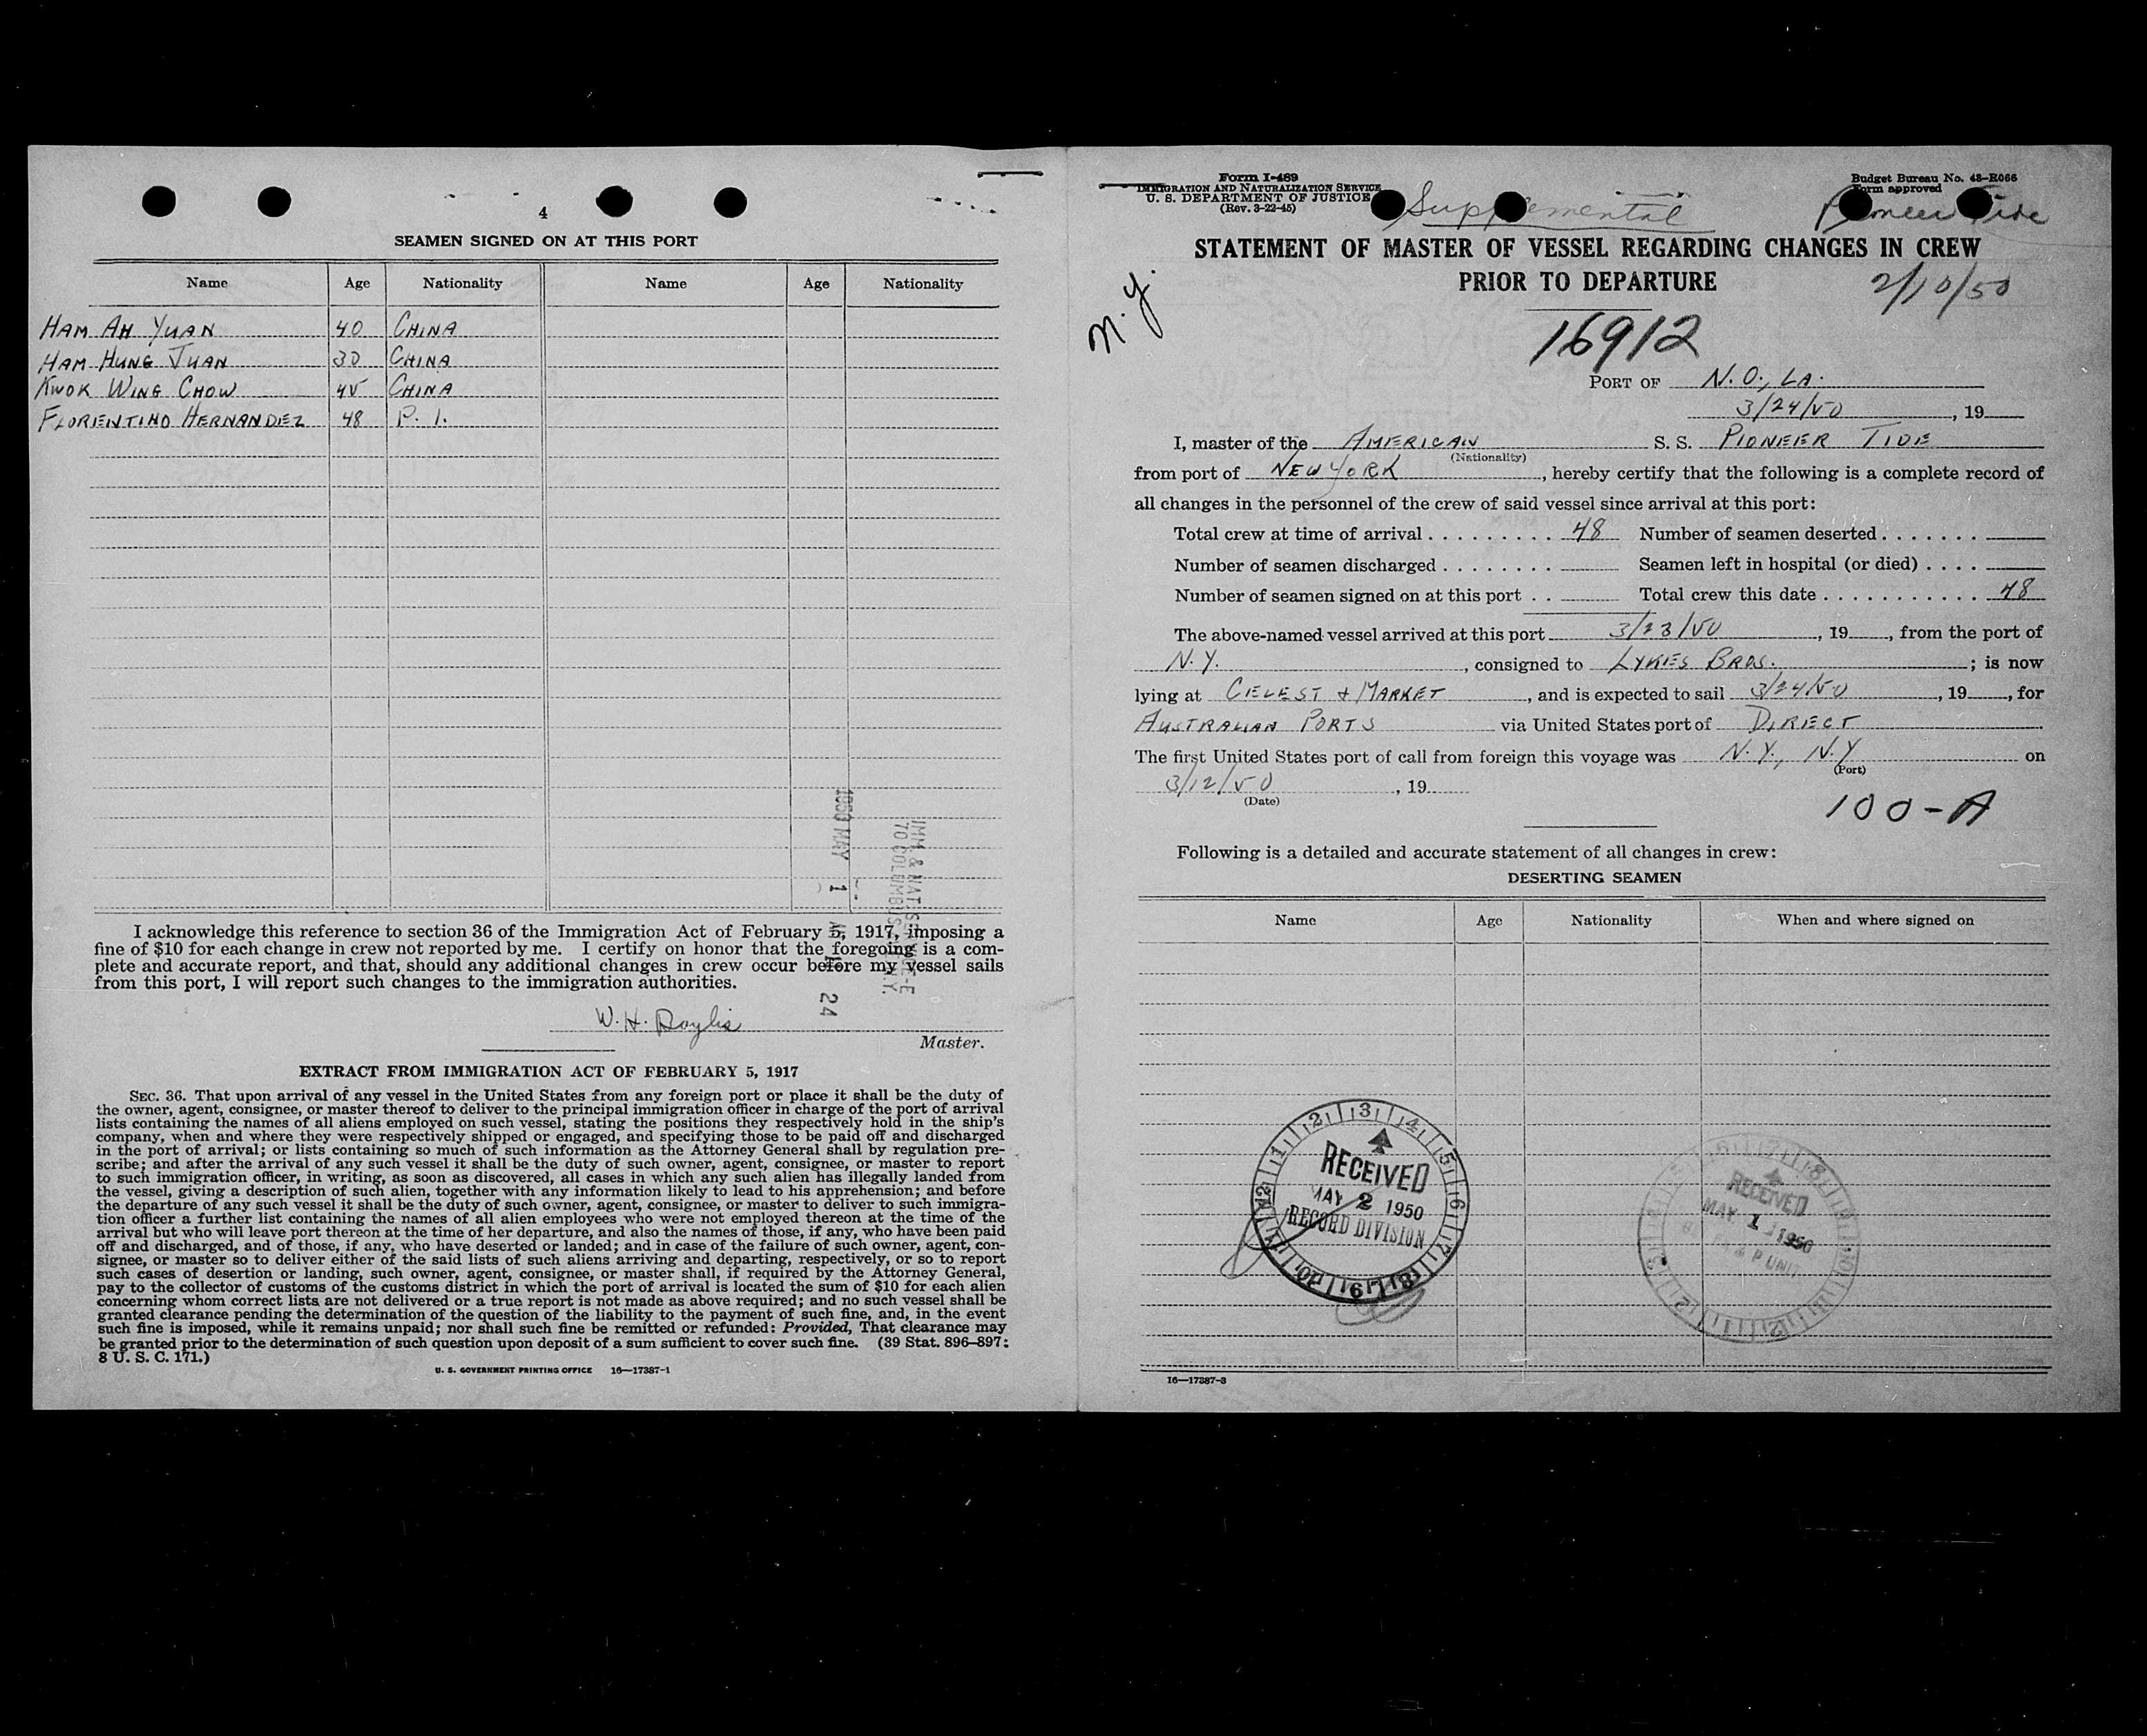 4
SEAMEN SIGNED ON AT THIS PORT
Name Age Nationality Name Age Nationality
HAM AH YUAN 40 CHINA
HAM HUNG JUAN 30 CHINA
KWOK WING CHOW 45 CHINA
FLORENTINO HERNANDEZ 48 P. I.
1950 MAY 1 24
IMM & NAT. S
70 COLUMBUS N.Y.
I acknowledge this reference to section 36 of the Immigration Act of February 5, 1917, imposing a
fine of $10 for each change in crew not reported by me. I certify on honor that the foregoing is a com-
plete and accurate report, and that, should any additional changes in crew occur before my vessel sails
from this port, I will report such changes to the immigration authorities.
W. H.
Master.
EXTRACT FROM IMMIGRATION ACT OF FEBRUARY 5, 1917
SEC. 36. That upon arrival of any vessel in the United States from any foreign port or place it shall be the duty of
the owner, agent, consignee, or master thereof to deliver to the principal immigration officer in charge of the port of arrival
lists containing the names of all aliens employed on such vessel, stating the positions they respectively hold in the ship's
company, when and where they were respectively shipped or engaged, and specifying those to be paid off and discharged
in the port of arrival; or lists containing so much of such information as the Attorney General shall by regulation pre-
scribe; and after the arrival of any such vessel it shall be the duty of such owner, agent, consignee, or master to report
to such immigration officer, in writing, as soon as discovered, all cases in which any such alien has illegally landed from
the vessel, giving a description of such alien, together with any information likely to lead to his apprehension; and before
the departure of any such vessel it shall be the duty of such owner, agent, consignee, or master to deliver to such immigra-
tion officer a further list containing the names of all alien employees who were not employed thereon at the time of the
arrival but who will leave port thereon at the time of her departure, and also the names of those, if any, who have been paid
off and discharged, and of those, if any, who have deserted or landed; and in case of the failure of such owner, agent, con-
signee, or master so to deliver either of the said lists of such aliens arriving and departing, respectively, or so to report
such cases of desertion or landing, such owner, agent, consignee, or master shall, if required by the Attorney General,
pay to the collector of customs of the customs district in which the port of arrival is located the sum of $10 for each alien
concerning whom correct lists are not delivered or a true report is not made as above required; and no such vessel shall be
granted clearance pending the determination of the question of the liability to the payment of such fine, and, in the event
such fine is imposed, while it remains unpaid; nor shall such fine be remitted or refunded: Provided, That clearance may
be granted prior to the determination of such question upon deposit of a sum sufficient to cover such fine. (39 Stat. 896-897;
8 U. S. C. 171.)
U. S. GOVERNMENT PRINTING OFFICE 16—17387-1
Form I-489
IMMIGRATION AND NATURALIZATION SERVICE
U. S. DEPARTMENT OF JUSTICE
(Rev. 3-22-45)
Supplemental
Budget Bureau No. 43-R066
Form approved
Pioneer Tide
STATEMENT OF MASTER OF VESSEL REGARDING CHANGES IN CREW
PRIOR TO DEPARTURE
N. Y.
2/10/50
16912
PORT OF N. O., LA.
3/24/50, 19
I, master of the AMERICAN S. S. PIONEER TIDE
(Nationality)
from port of NEW YORK, hereby certify that the following is a complete record of
all changes in the personnel of the crew of said vessel since arrival at this port:
Total crew at time of arrival 48 Number of seamen deserted
Number of seamen discharged Seamen left in hospital (or died)
Number of seamen signed on at this port Total crew this date 48
The above-named vessel arrived at this port 3/23/50, 19, from the port of
N. Y., consigned to LYKES BROS.; is now
lying at CELEST & MARKET, and is expected to sail 3/24/50, 19, for
AUSTRALIAN PORTS via United States port of DIRECT
The first United States port of call from foreign this voyage was N. Y., N. Y on
(Port)
3/12/50, 19
(Date)
100-A
Following is a detailed and accurate statement of all changes in crew:
DESERTING SEAMEN
Name Age Nationality When and where signed on
RECEIVED
MAY 2 1950
RECORD DIVISION
RECEIVED
MAY 1 1950
P UNIT
16—17387-3